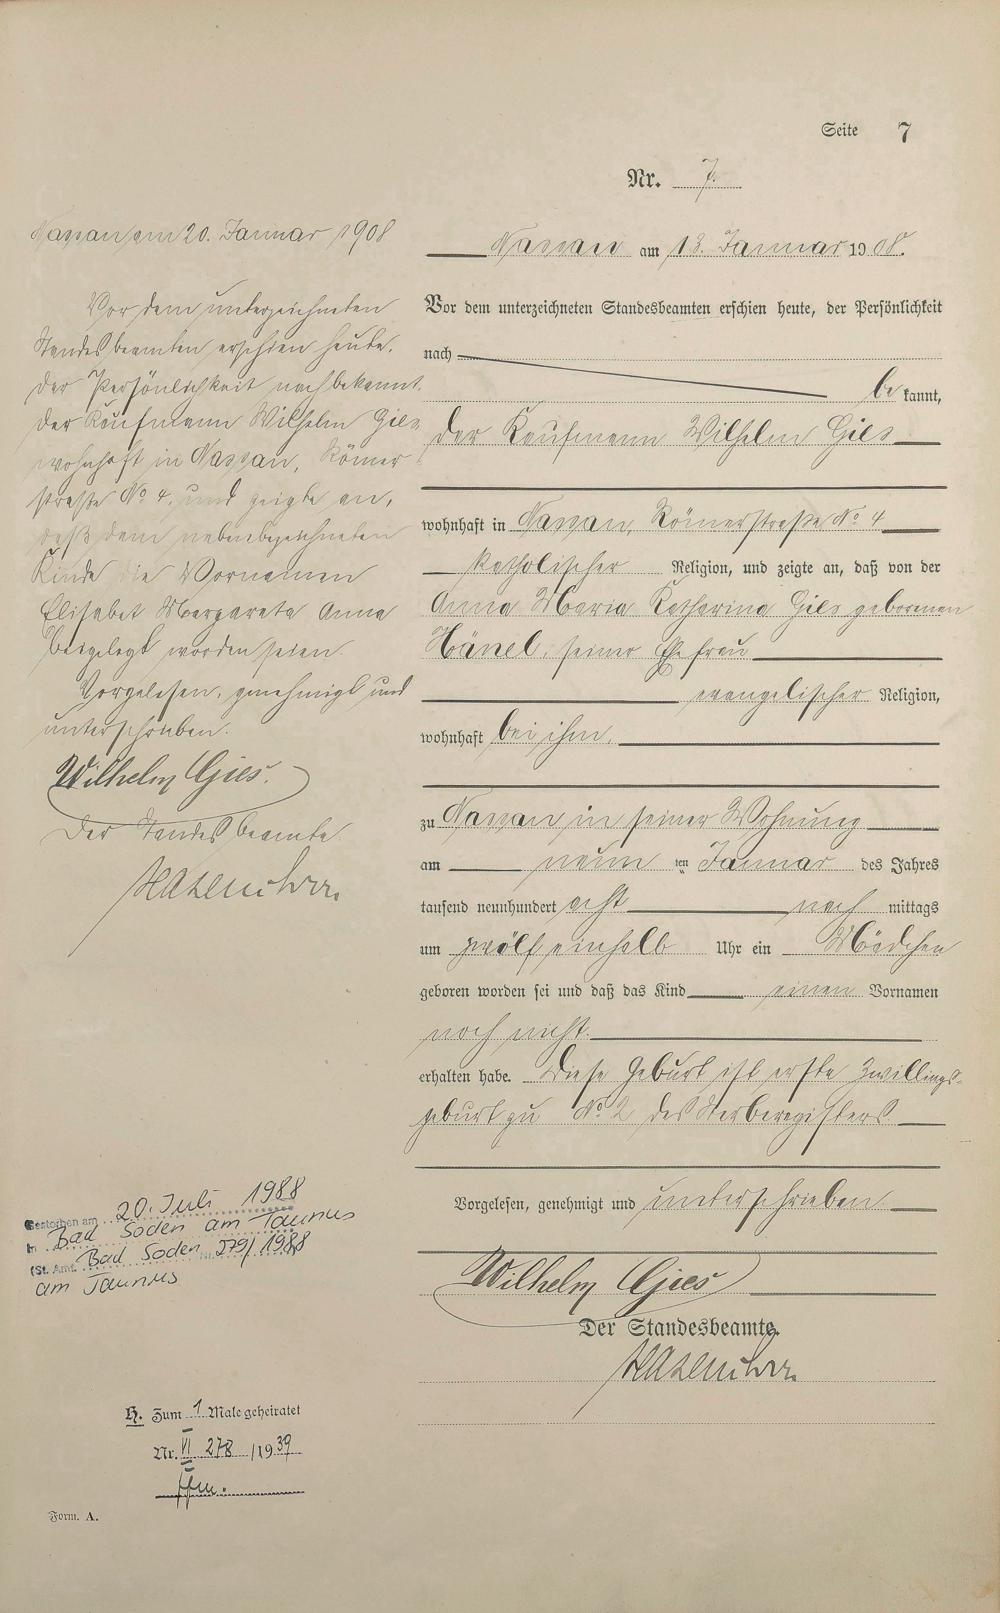 Seite 7
Nr. 7.
Nassau am 13. Januar 1908.
Vor dem unterzeichneten Standesbeamten erschien heute, der Persönlichkeit
nach
bekannt,
der Kaufmann Wilhelm Gies
wohnhaft in Nassau, Römerstraße No 4
katholischer Religion, und zeigte an, daß von der
Anna Maria Katharina Gies geborenen
Hänel, seiner Ehefrau
evangelischer Religion,
wohnhaft bei ihm,
zu Nassau in seiner Wohnung
am neun ten Januar des Jahres
tausend neunhundert acht nach mittags
um zwölf einhalb Uhr ein Mädchen
geboren worden sei und daß das Kind einen Vornamen
noch nicht
erhalten habe. Diese Geburt ist erste Zwillings-
geburt zu No 2 des Sterberegisters
Vorgelesen, genehmigt und unterschrieben
Wilhelm Gies
Der Standesbeamte.
Nassau am 20. Januar 1908
Vor dem unterzeichneten
Standesbeamten erschien heute,
der Persönlichkeit nach bekannt,
der Kaufmann Wilhelm Gies
wohnhaft in Nassau, Römer
straße No 4, und zeigte an,
daß dem nebenbezeichneten
Kinde die Vornamen
Elisabet Margareta Anna
beigelegt worden seien.
Vorgelesen, genehmigt und
unterschrieben.
Wilhelm Gies.
Der Standesbeamte
Gestorben am 20. Juli 1988
in Bad Soden am Taunus
(St. Amt Bad Soden Nr. 279/1988
am Taunus
H. Zum 1 Male geheiratet
Nr. VI 278 /1939
Ffm.
Form. A.